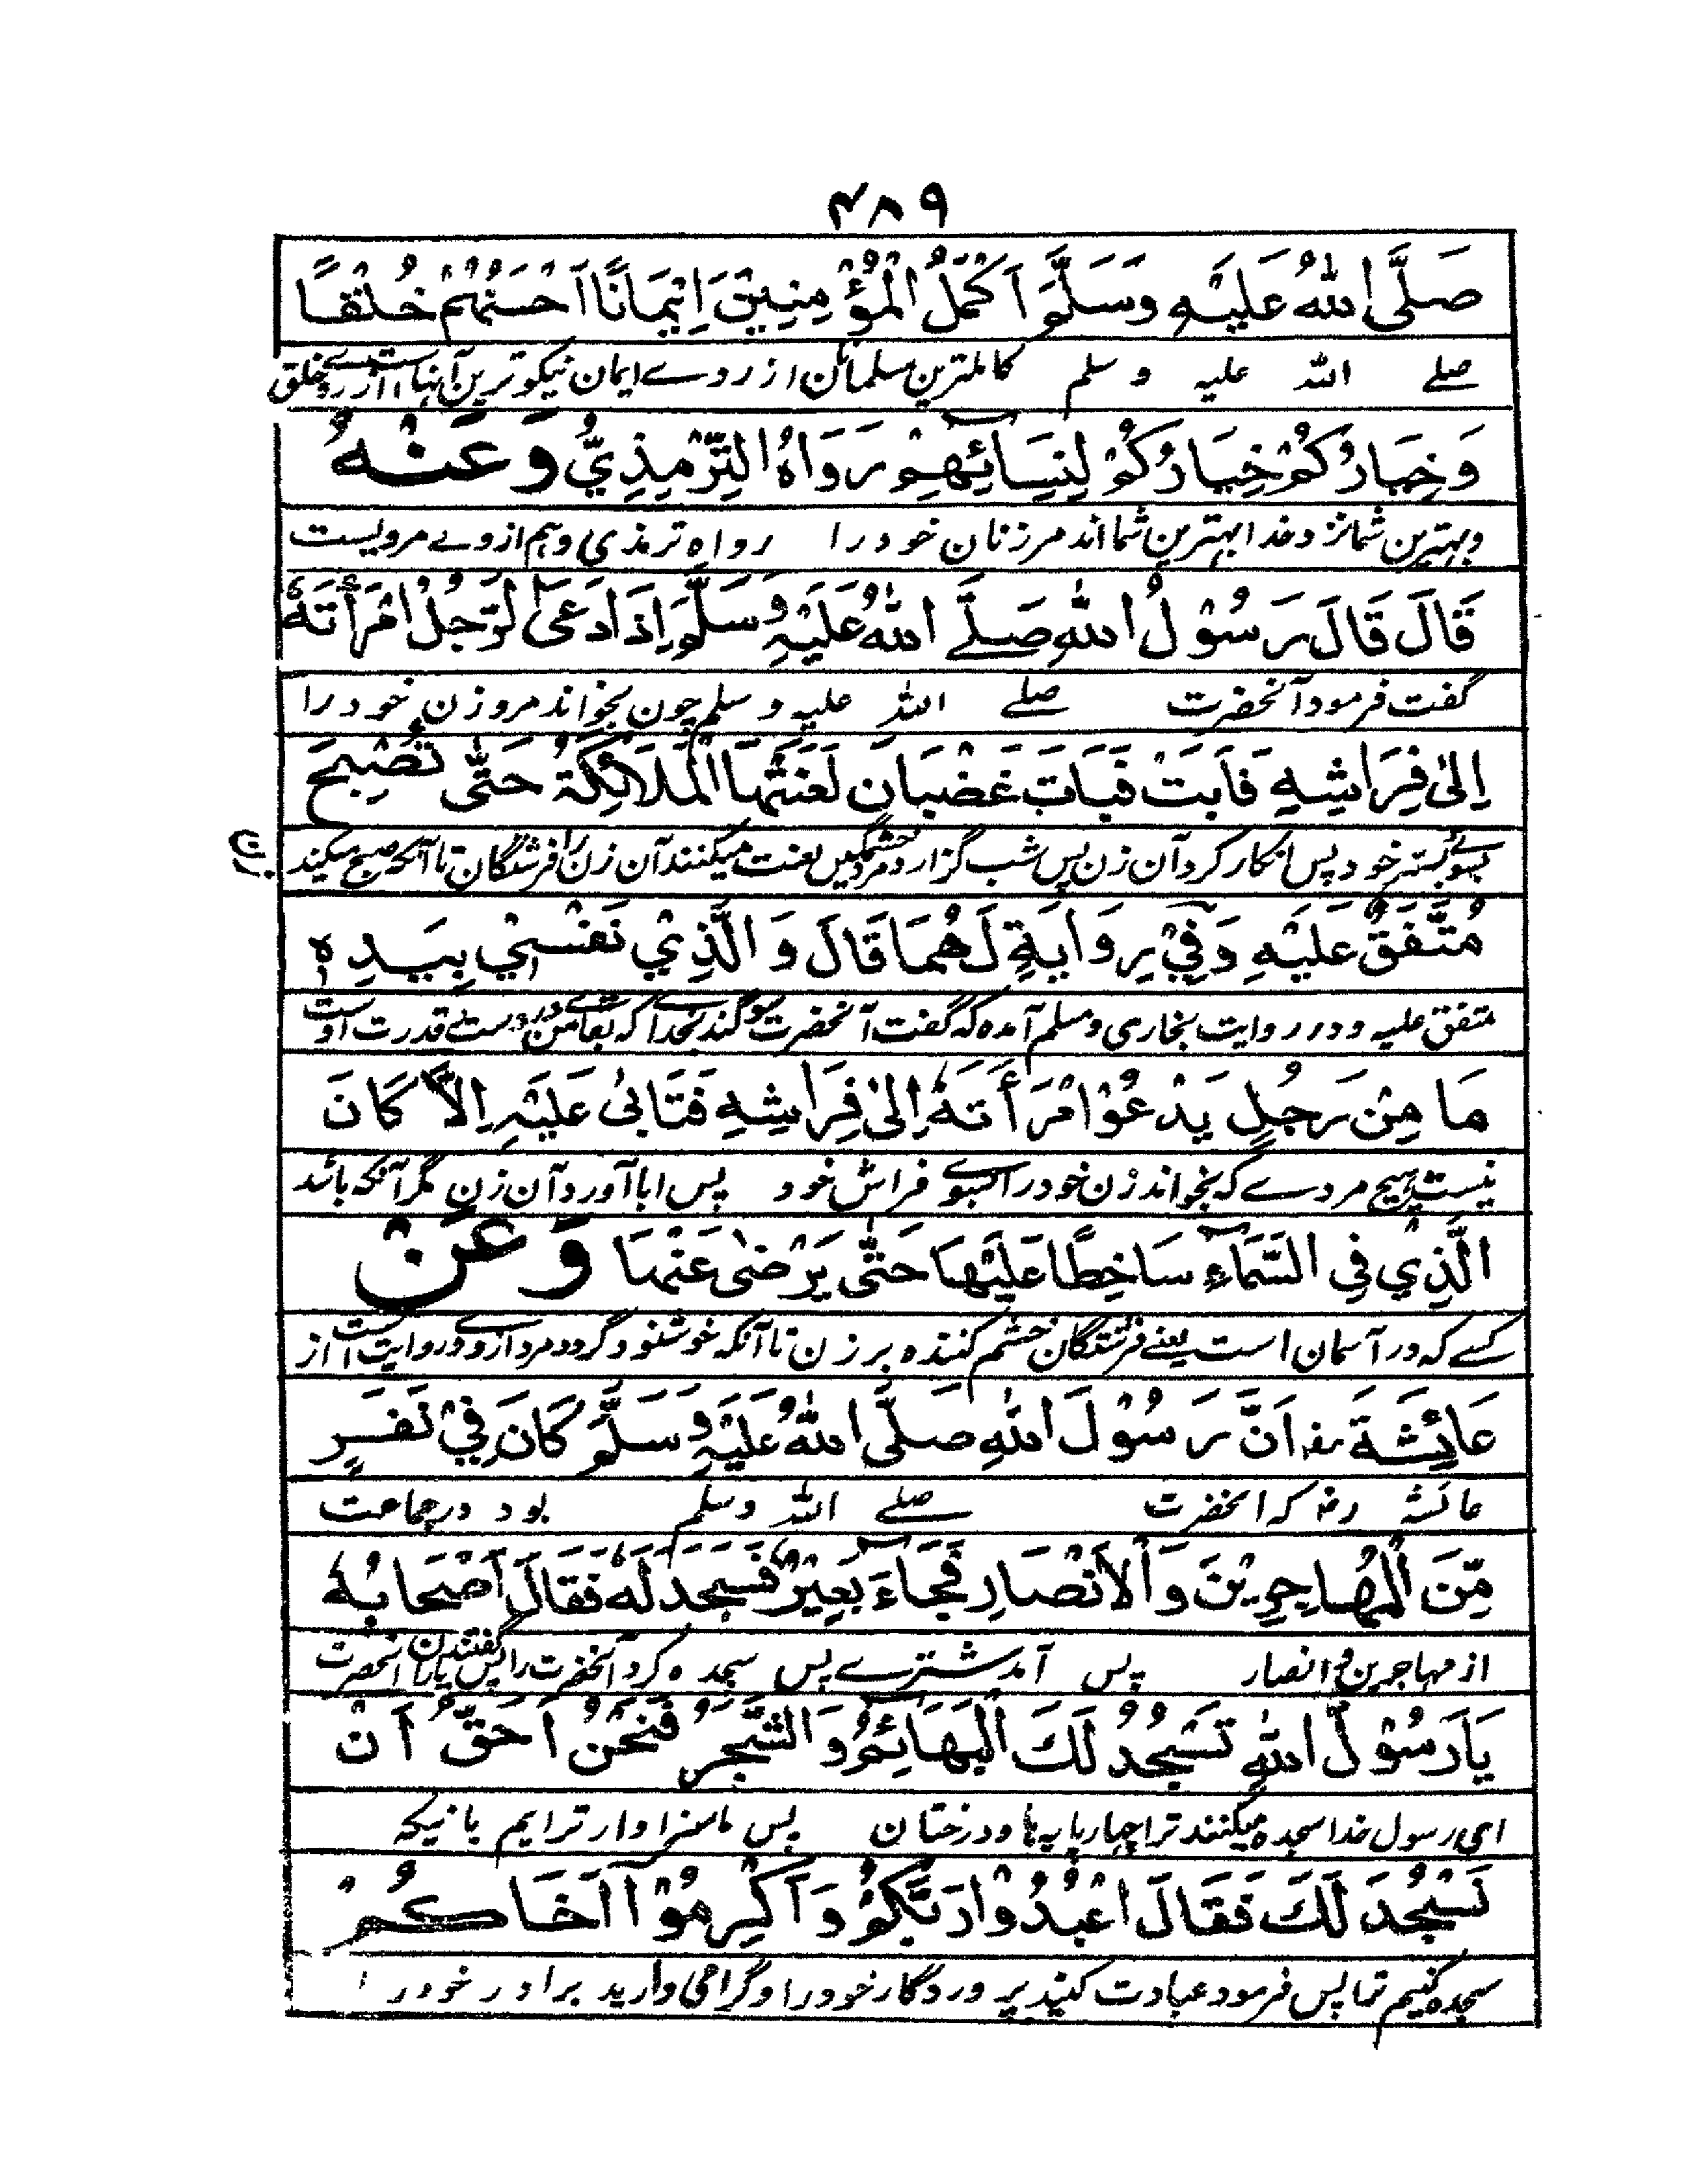 ۴۸۹
صَلَّى اللهُ عَلَيْهِ وَسَلَّمَ اَكْمَلُ الْمُؤْمِنِيْنَ اِيْمَانًا اَحْسَنُهُمْ خُلْقًا
صلے اللہ علیہ و سلم کاملترین مسلمانان از روے ایمان نیکوترین آنہاست از روے خلق
وَخِيَارُكُمْ خِيَارُكُمْ لِنِسَائِهِمْ رَوَاهُ التِّرْمِذِيُّ وَعَنْهُ
وبہترین شما نزد خدا بہترین شما اند مر زنان خود را رواہ ترمذی وہم از وے مرویست
قَالَ قَالَ رَسُوْلُ اللهِ صَلَّے اللهُ عَلَيْهِ وَسَلَّمَ اِذَا دَعَى الرَّجُلُ امْرَأَتَهٗ
گفت فرمود آنحضرت صلے اللہ علیہ و سلم چون بخواند مرد زن خود را
اِلىٰ فِرَاشِهٖ فَاَبَتْ فَبَاتَ غَضْبَانَ لَعَنَتْهَا الْمَلَائِكَةُ حَتّٰى تُصْبِحَ
بسوے بستر خود پس انکار کرد آن زن پس شب گزارد مرد خشمگین لعنت میکنند آن زن را فرشتگان تا آنکہ صبح میکند
مُتَّفَقٌ عَلَيْهِ وَفِيْ رِوَايَةٍ لَهُمَا قَالَ وَالَّذِيْ نَفْسِيْ بِيَدِهٖ
متفق علیہ و در روایت بخاری و مسلم آمدہ کہ گفت آنحضرت سوگند بخداے کہ بقاے من در دست قدرت اوست
مَا مِنْ رَجُلٍ يَدْعُوْا امْرَأَتَهٗ اِلىٰ فِرَاشِهٖ فَتَابىٰ عَلَيْهِ اِلَّا كَانَ
نیست ہیچ مردے کہ بخواند زن خود را بسوے فراش خود پس ابا آورد آن زن مگر آنکہ باشد
الَّذِيْ فِي السَّمَاءِ سَاخِطًا عَلَيْهَا حَتّٰى يَرْضىٰ عَنْهَا وَعَنْ
کسے کہ در آسمان است یعنے فرشتگان خشم کنندہ بر زن تا آنکہ خوشنود گردد مرد از وے و روایت است از
عَائِشَةَ رض اَنَّ رَسُوْلَ اللهِ صَلَّى اللهُ عَلَيْهِ وَسَلَّمَ كَانَ فِيْ نَفَرٍ
عائشہ رض کہ آنحضرت صلے اللہ وسلم بود در جماعت
مِّنَ الْمُهَاجِرِيْنَ وَالْاَنْصَارِ فَجَاءَ بَعِيْرٌ فَسَجَدَ لَهٗ فَقَالَ اَصْحَابُهٗ
از مہاجرین و انصار پس آمد شترے پس سجدہ کرد آنحضرت را پس گفتند یاران آنحضرت
يَا رَسُوْلَ اللهِ تَسْجُدُ لَكَ الْبَهَائِمُ وَالشَّجَرُ فَنَحْنُ اَحَقُّ اَنْ
ای رسول خدا سجدہ میکنند ترا چارپایہ ہا و درختان پس ما سزاوار ترایم بانیکہ
نَسْجُدَ لَكَ فَقَالَ اعْبُدُوْا رَبَّكُمْ وَاَكْرِمُوْا اَخَاكُمْ
سجدہ کنیم ترا پس فرمود عبادت کنید پروردگار خود را و گرامی دارید برادر خود را